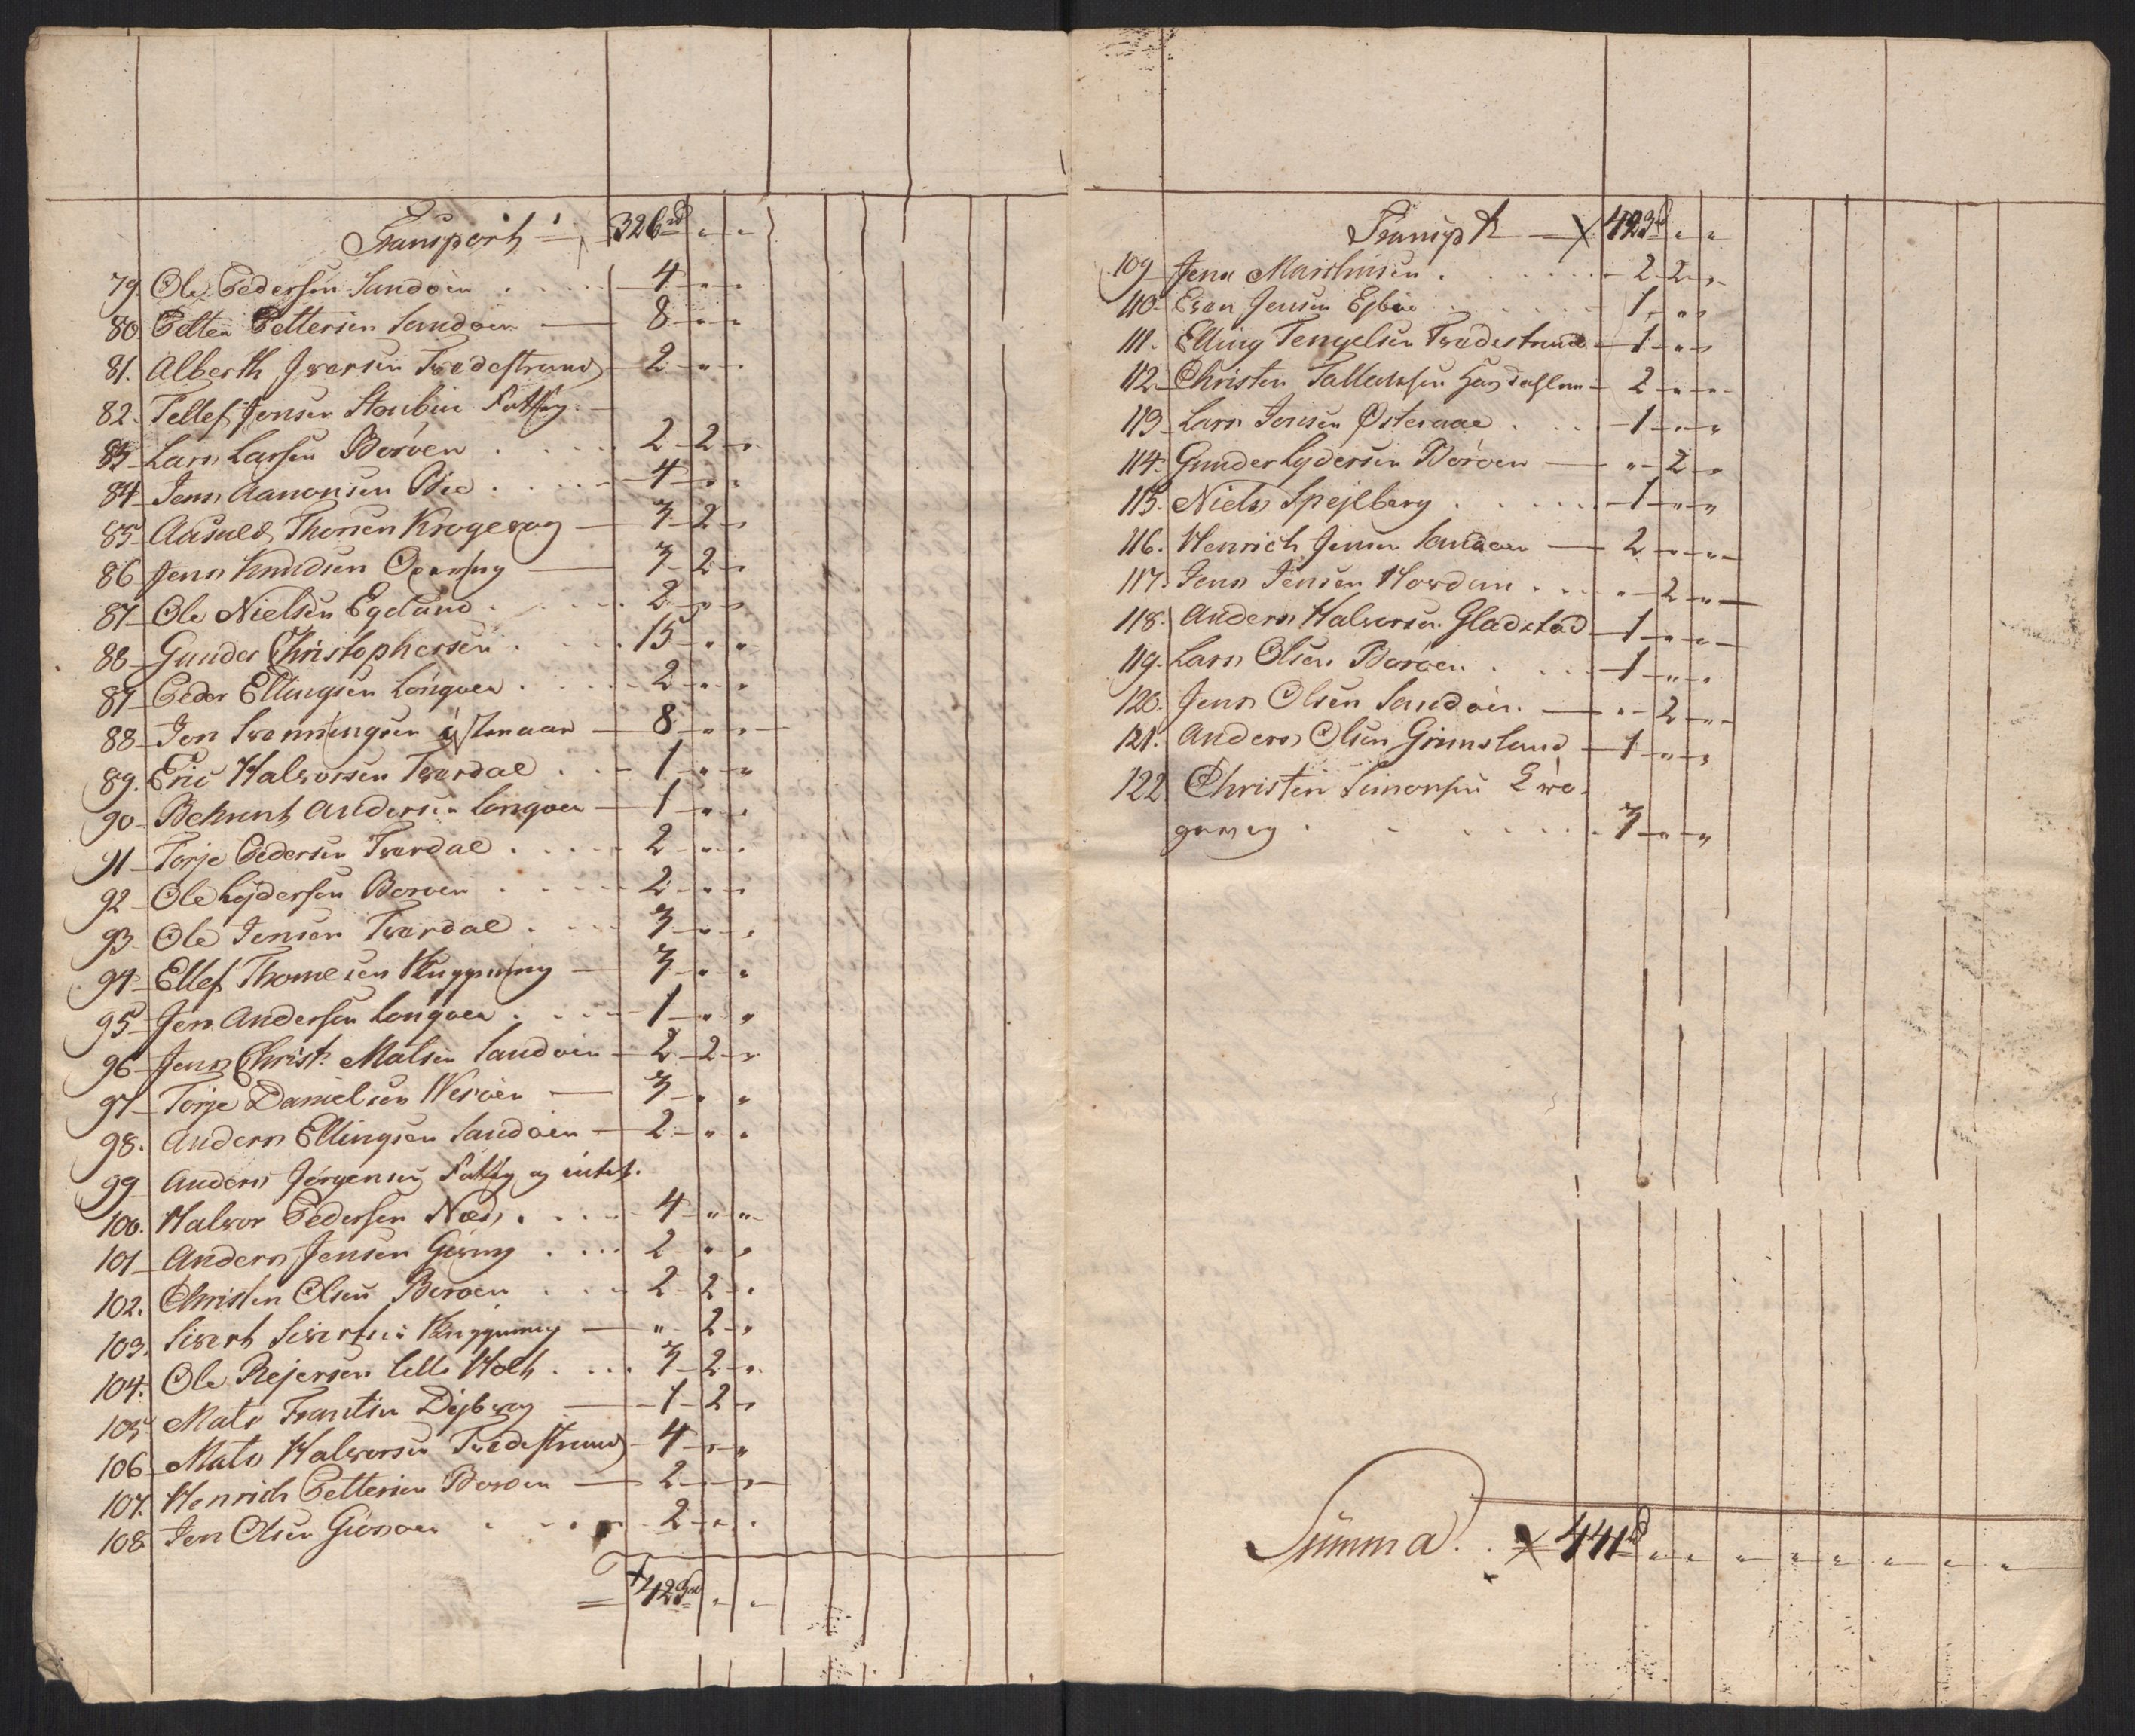 Transport = 326 rd " "
79. Ole Pedersen Sandøen . . . . 4 " "
80. Petter Pettersen Sandøen — 8 " "
81. Alberth Iversen Tvedestrand 2 " "
82. Tellef Jensen Stoubøe Fattig.
83 Lars Larsen Borøen . . . . 2 2 "
84 Jens Aanonsen Bie . . . . 4 " "
85 Aasuld Thorsen Krogevog — 3 2 "
86 Jens Knudsen — 3 2 "
87 Ole Nielsen Egeland . . . . 2 " "
88 Gunder Christophersen . . . . 15 " "
87 Peder Ellingsen Longøen . . . . 2 " "
88 Jon Svenningsen — 8 " "
89. Eric Halvorsen Tverdal . . . 1 " "
90 Behrent Andersen Longøen — 1 " "
91 Torje Pedersen Tverdal . . . . 2 " "
92 Ole Lydersen Borøen . . . . 2 " "
93 Ole Jensen Tverdal . . . . 3 " "
94 Ellef Thomesen — 3 " "
95 Jens Andersen Longøen . . . . 1 " "
96 Jens Christ. Matsen Sandøen 2 2 "
97 Torje Danielsen Vesøen — 3 " "
98. Anders Ellingsen Sandøen — 2 " "
99 Anders Jørgensen Fattig og intet.
100. Halvor Pedersen Næs . . . . 4 " "
101 Anders Jensen . . . . 2 " "
102. Christen Olsen Borøen . . . 2 2 "
103. Sivert Sivertsen — " 2 "
104. Ole Rejersen Lille Holt . . . . 3 2 "
105 Mats Frantsen Dybvog — 1 2 "
106 Mats Halvorsen Tvedestrand 4 " "
107. Henrich Pettersen Borøen — 2 " "
108 Jon Olsen . . . . 2 " "
= 423 rd " "
Transpt — 423 rd " "
109 Jens Marthinsen . . . . 2 2 "
110. Even Jensen . . . . 1 " "
111. Elling Tengelsen Tvedestrand 1 " "
112 Christen Tallaksen — 2 " "
113 Lars Jonsen Østeraae . . . 1 " "
114. Gunder Lydersen Borøen — " 2 "
115. Niels Spejlberg . . . . 1 " "
116. Henrich Jensen Sandøen — 2 " "
117. Jens Jensen Hovdan . . . " 2 "
118. Anders Halvorsen Gladstad 1 " "
119. Lars Olsen Borøen . . . 1 " "
120. Jens Olsen Sandøen. — " 2 "
121. Anders Olsen Grimsland — 1 " "
122. Christen Simonsen
. . . . 3 " "
Summa . . 441 rd " " " " " " " "